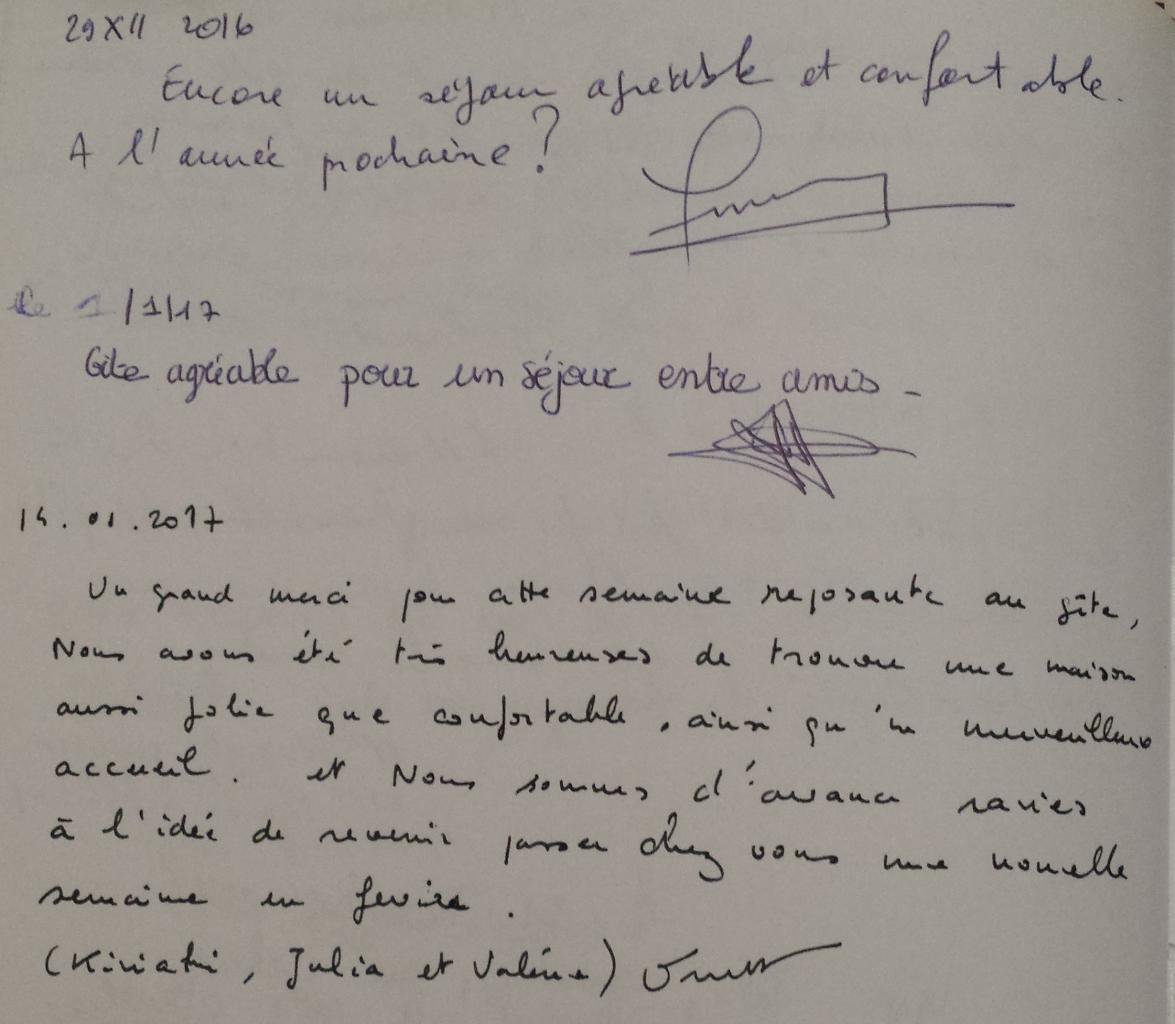 29 XII 2016
Encore un séjour agréable et confortable.
A l'année prochaine ?
Le 1/1/17
Gîte agréable pour un séjour entre amis -
14.01.2017
Un grand merci pour cette semaine reposante au gîte,
Nous avons été très heureuses de trouver une maison
aussi jolie que confortable, ainsi qu'un merveilleux
accueil. et Nous sommes d'avance ravies
à l'idée de revenir passer chez vous une nouvelle
semaine en fevrier.
( , Julia et Valérie)